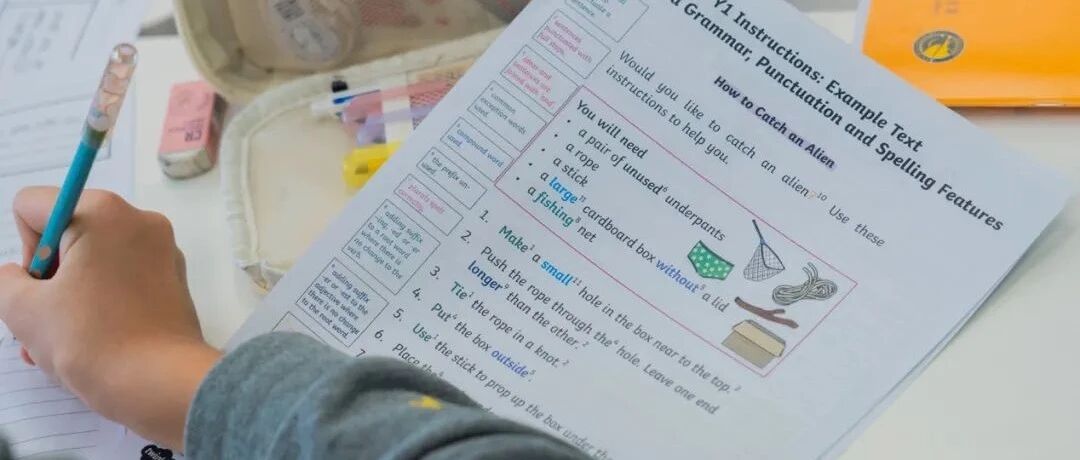 Y1 Instructions: Example Text
Grammar, Punctuation and Spelling Features
How to Catch an Alien
Would you like to catch an alien?¹⁰ Use these
instructions to help you.
You will need
• a pair of unused⁶ underpants
• a rope
• a stick
• a large¹¹ cardboard box without⁵ a lid
• a fishing⁸ net
1. Make¹ a small¹¹ hole in the box near to the top.²
2. Push the rope through the⁴ hole. Leave one end
longer⁹ than the other.²
3. Tie¹ the rope in a knot.²
4. Put⁴ the box outside⁵.
5. Use¹ the stick to prop up the box under the
6. Place the⁴
7
sentence.
sentences
punctuated with
full stops.
ideas and
sentences are
joined with 'and'
common
exception words
used.
compound word
used.
the prefix un-
used.
plurals spelt
correctly.
adding suffix
-ing, -ed or -er
to a root word
where there is
no change to the
verb.
adding suffix
-er or -est to the
adjective where
there is no change
to the root word.